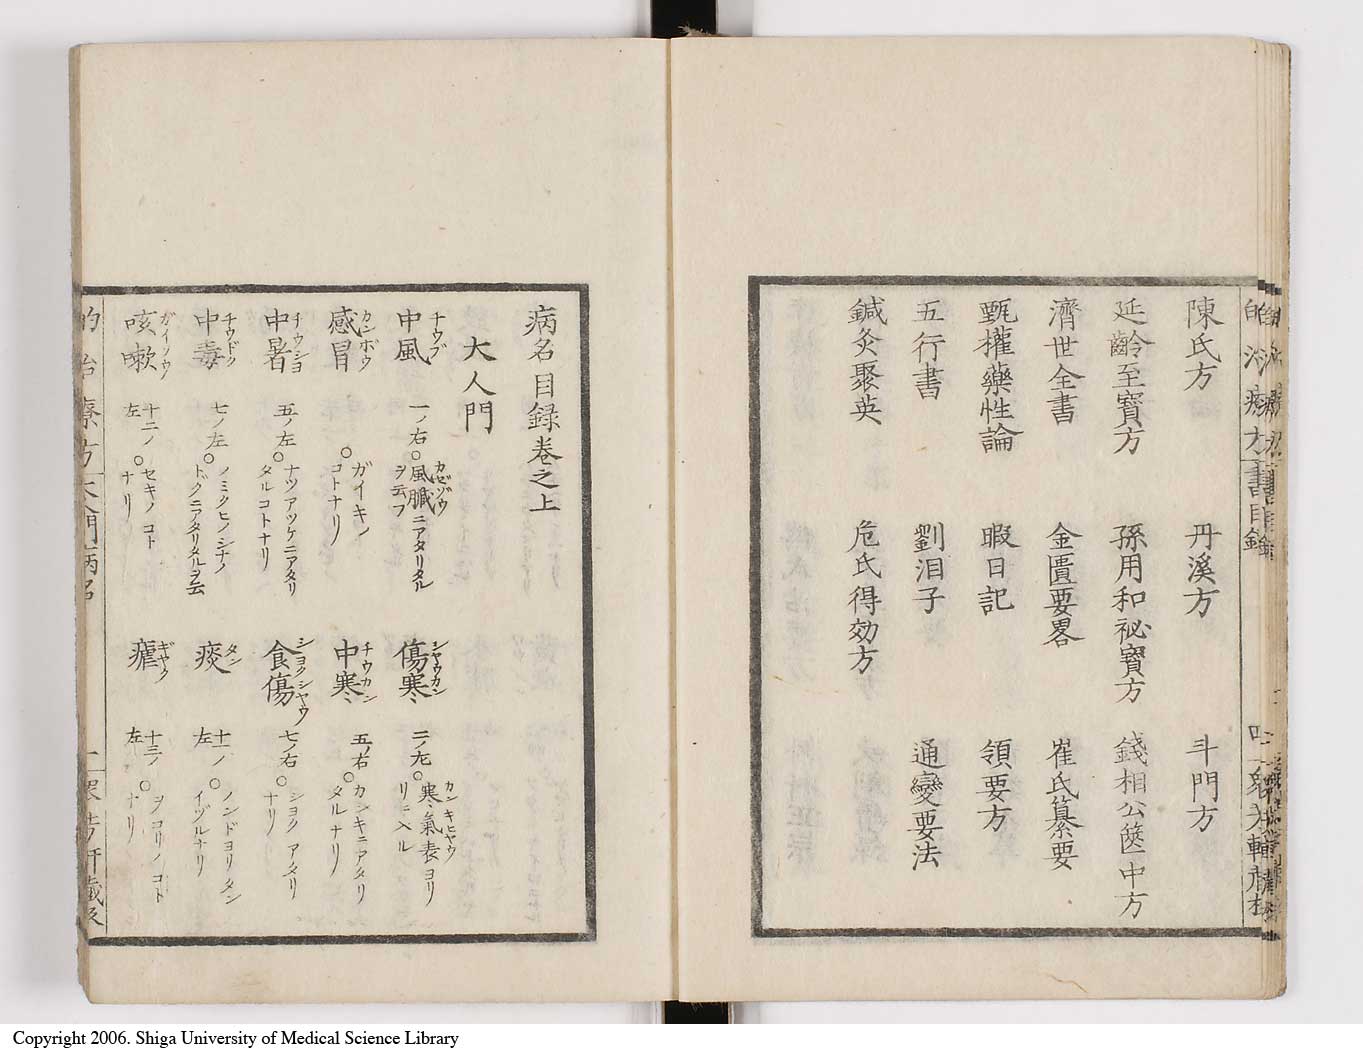 陳氏方　丹溪方　斗門方
延齡至寳方　孫用和祕寳方　錢相公篋中方
濟世全書　金匱要畧　崔氏纂要
甄權藥性論　暇日記　領要方
五行書　劉涓子　通變要法
鍼灸聚英　危氏得効方
病名目録巻之上
大人門
中風 チウブ 一ノ右○風臓 カゼゾウ ニアタリタルヲ云フ　傷寒 シヤウカン 二ノ九○寒氣表 カンキヒヤウ ヨリリニ入ル
感冒 カンボウ ○ガイキノコトナリ　中寒 チウカン 五ノ右○カンキニアタリタルナリ
中暑 チウシヨ 五ノ左○ナツアツケニアタリタルコトナリ　食傷 シヨクシヤウ 七ノ右○シヨクアタリナリ
中毒 チウドク 七ノ左○ノミクヒノシナノドクニアタリタルヲ云　痰 タン 十一ノ左○ノンドヨリタンイヅルナリ
咳嗽 ガイソウ 十二ノ左○セキノコトナリ　瘧 ギヤク 十三ノ左○ヲコリノコトナリ
Copyright 2006. Shiga University of Medical Science Library